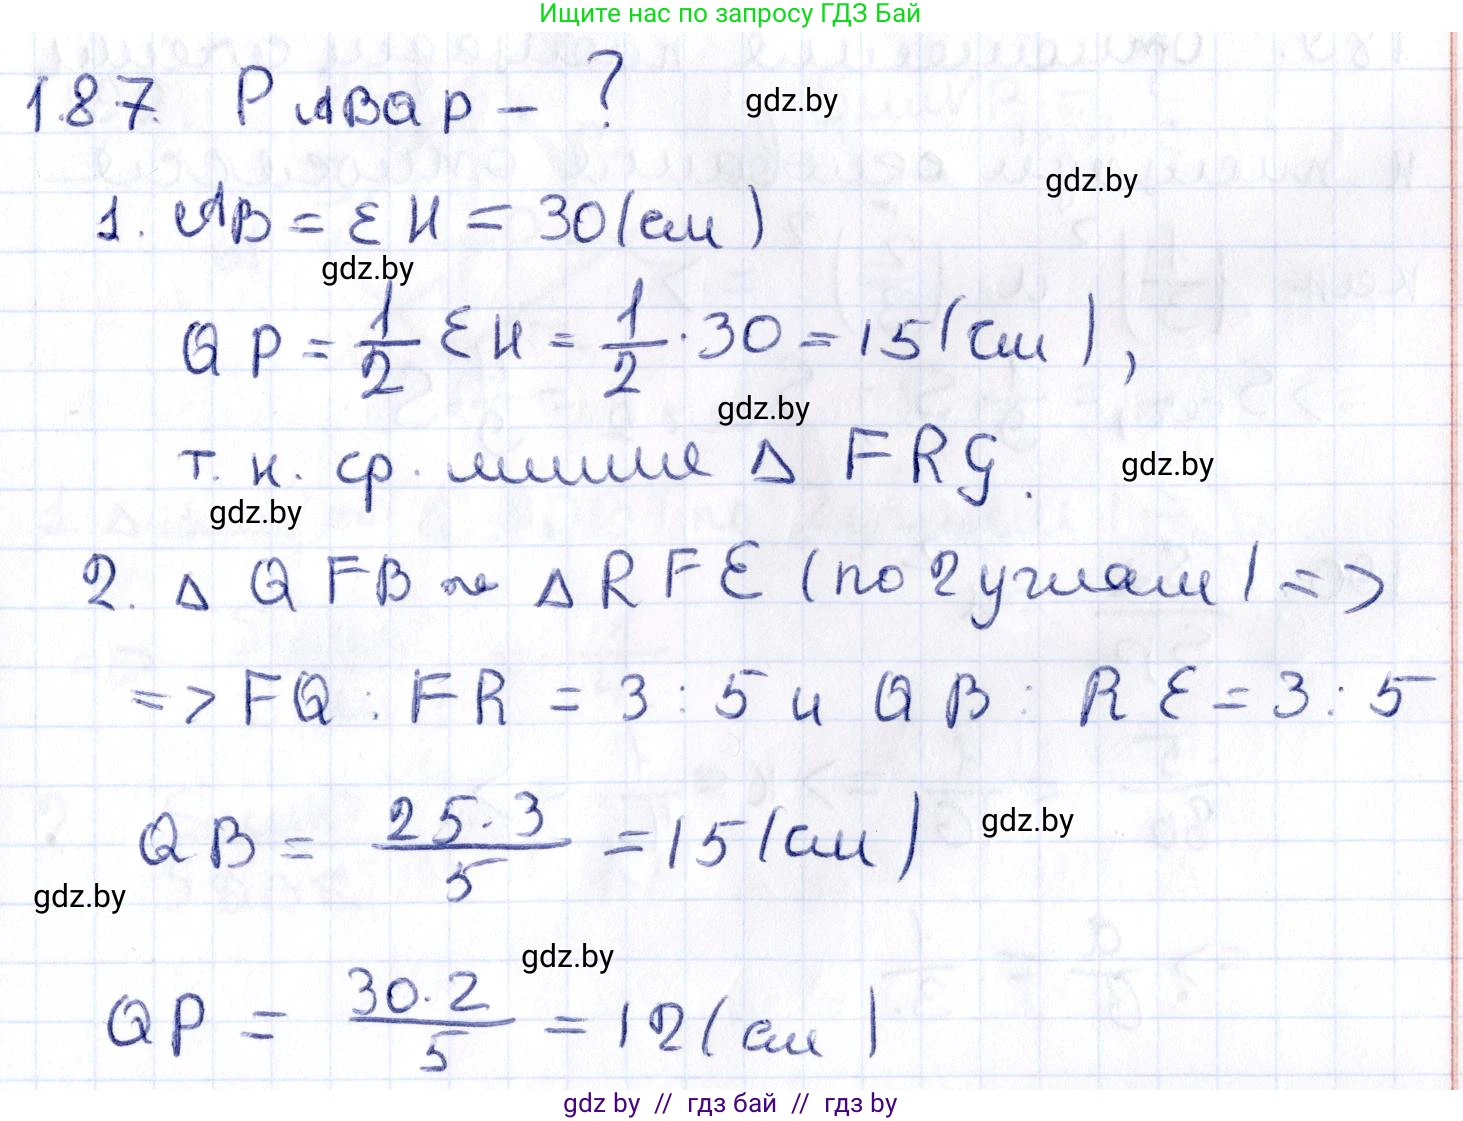 Ищите нас по запросу ГДЗ Бай
187. P ABQP - ?
gdz.by
gdz.by
1. AB = EH = 30 (см)
gdz.by
QP = 1/2 EH = 1/2 · 30 = 15 (см),
gdz.by
т.к. ср. линия Δ FRG.
gdz.by
gdz.by
2. Δ QFB ~ Δ RFE (по 2 углам) =>
=> FQ : FR = 3 : 5 и QB : RE = 3 : 5
QB = 25·3/5 = 15 (см)
gdz.by
gdz.by
gdz.by
QP = 30·2/5 = 12 (см)
gdz by // гдз бай // гдз by